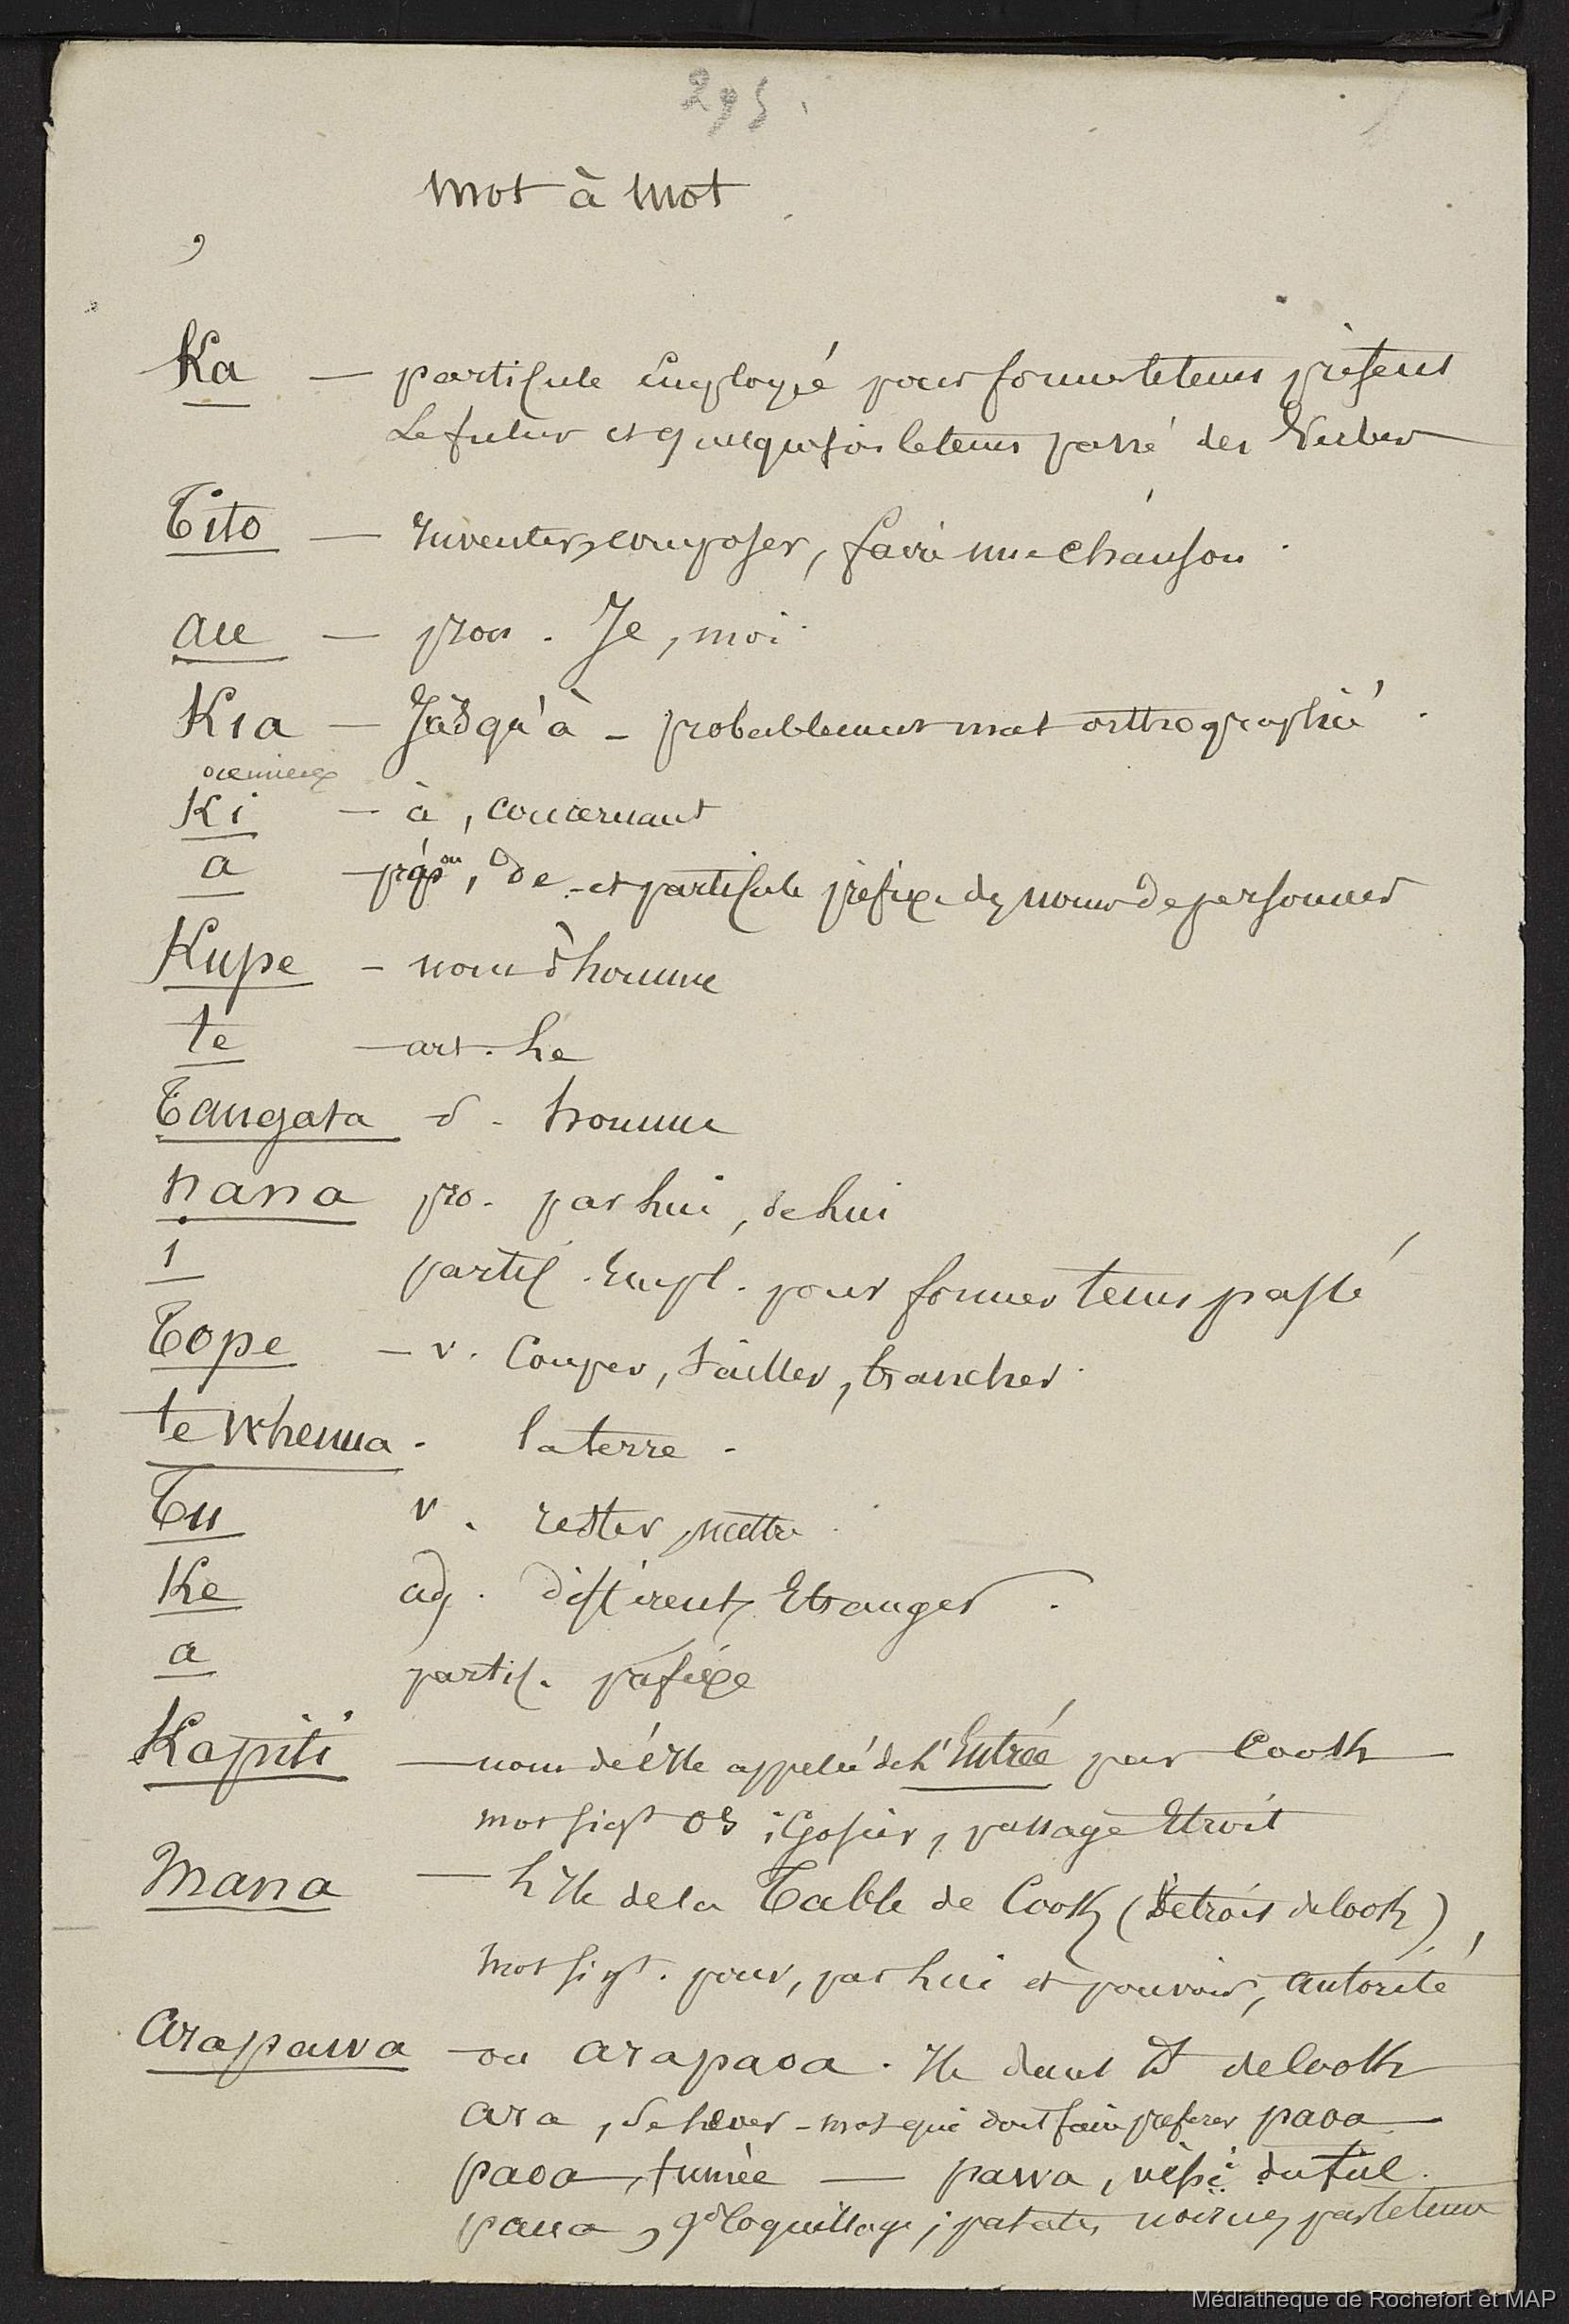 295.
mot à mot
Ka — particule employée pour former le tems présent
Le futur et quelquefois le tems passé des Verbes
Tito — Inventer, composer, faire une chanson.
au — pron. Je, moi.
Kia — Jusqu'à – probablement mal orthographié.
Ki — à, concernant
a — prép ou, de – et particule préfixe des noms de personnes
Kupe – nom d'homme
te — art. Le
Tangata – d. homme
nana pro. par lui, de lui
i partic. empl. pour former tems passé
Tope – v. Couper, tailler, trancher.
te Whenua. la terre.
Tu v. rester, mettre.
Ke adj. différent, Etranger.
a partic. préfixe
Kapiti — nom de l'Ile appelée de L'Entrée par Cook
mot sigt os ; Gosier, passage Etroit
Mana — L'Ile de la Table de Cook (Détroit de Cook),
mot sigt. pour, par lui et pouvoir, autorité
Arapawa – ou arapaoa. Ile dans dt de Cook
ara, se lever – mot qui doit faire préférer paoa
paoa, fumée — pawa, vessie du fiel.
paua, gd Coquillage ; patates noircies par le tems
Médiathèque de Rochefort et MAP